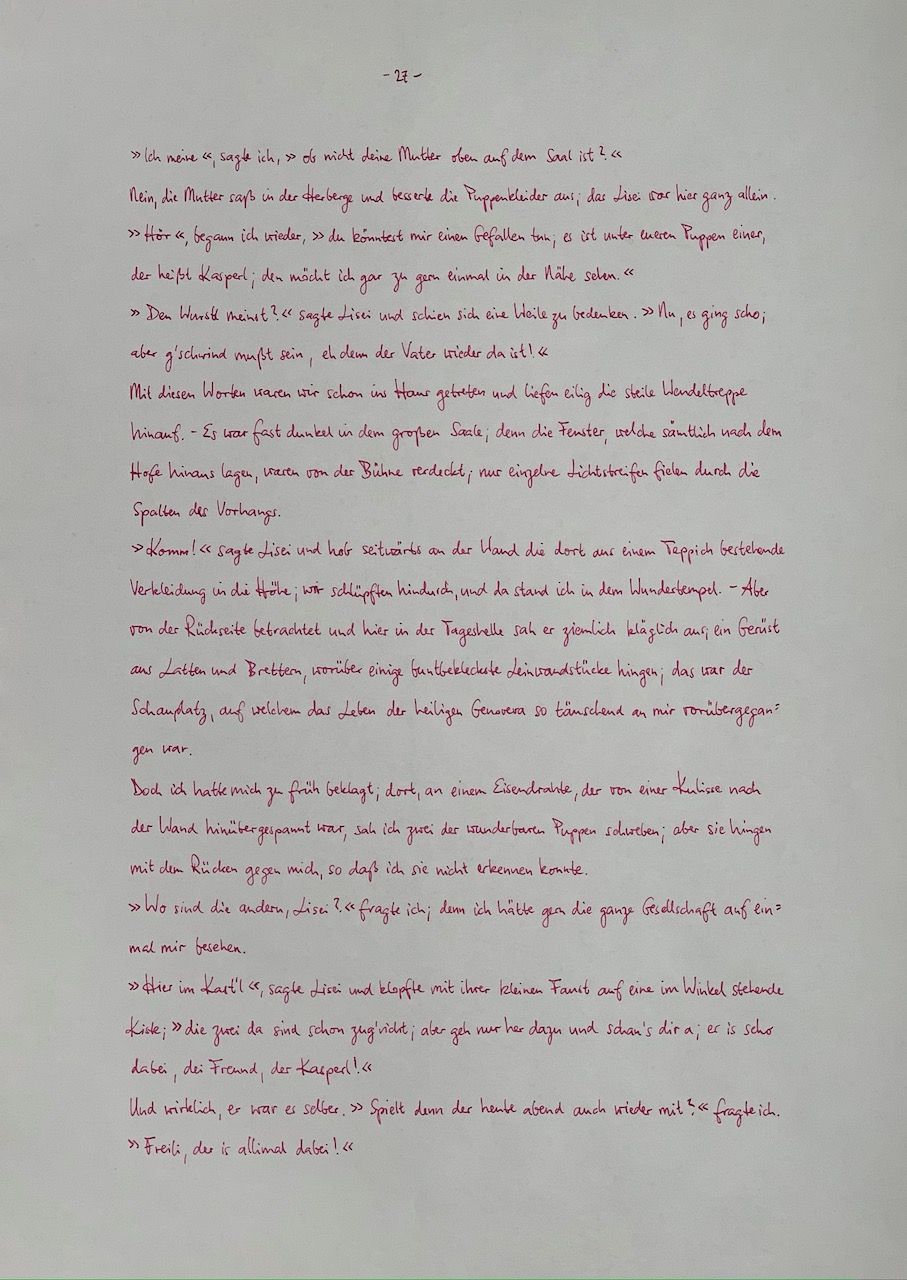 - 27 -
»Ich meine«, sagte ich, »ob nicht deine Mutter oben auf dem Saal ist?«
Nein, die Mutter saß in der Herberge und besserte die Puppenkleider aus; das Lisei war hier ganz allein.
»Hör«, begann ich wieder, »du könntest mir einen Gefallen tun; es ist unter eueren Puppen einer,
der heißt Kasperl; den möcht ich gar zu gern einmal in der Nähe sehen.«
»Den Wurstl meinst?« sagte Lisei und schien sich eine Weile zu bedenken. »Nu, es ging scho;
aber g'schwind mußt sein, eh denn der Vater wieder da ist!«
Mit diesen Worten waren wir schon ins Haus getreten und liefen eilig die steile Wendeltreppe
hinauf. - Es war fast dunkel in dem großen Saale; denn die Fenster, welche sämtlich nach dem
Hofe hinaus lagen, waren von der Bühne verdeckt; nur einzelne Lichtstreifen fielen durch die
Spalten des Vorhangs.
»Komm!« sagte Lisei und hob seitwärts an der Wand die dort aus einem Teppich bestehende
Verkleidung in die Höhe; wir schlüpften hindurch, und da stand ich in dem Wundertempel. - Aber
von der Rückseite betrachtet und hier in der Tageshelle sah er ziemlich kläglich aus; ein Gerüst
aus Latten und Brettern, worüber einige buntbekleckste Leinwandstücke hingen; das war der
Schauplatz, auf welchem das Leben der heiligen Genoveva so täuschend an mir vorübergegan=
gen war.
Doch ich hatte mich zu früh beklagt; dort, an einem Eisendrahte, der von einer Kulisse nach
der Wand hinübergespannt war, sah ich zwei der wunderbaren Puppen schweben; aber sie hingen
mit dem Rücken gegen mich, so daß ich sie nicht erkennen konnte.
»Wo sind die andern, Lisei?« fragte ich; denn ich hätte gern die ganze Gesellschaft auf ein=
mal mir besehen.
»Hier im Kast'l«, sagte Lisei und klopfte mit ihrer kleinen Faust auf eine im Winkel stehende
Kiste; »die zwei da sind schon zug'richt; aber geh nur her dazu und schau's dir a; er is scho
dabei, dei Freund, der Kasperl!«
Und wirklich, er war es selber. »Spielt denn der heute abend auch wieder mit?« fragte ich.
»Freili, der is allimal dabei!«